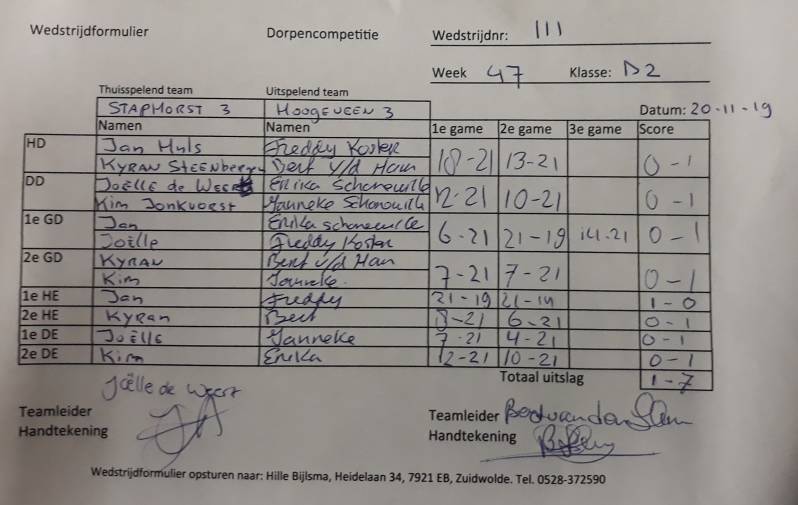 Wedstrijdformulier Dorpencompetitie Wedstrijdnr: III
Week 47 Klasse: D2
Thuisspelend team Uitspelend team
STAPHORST 3 HOOGEVEEN 3 Datum: 20-11-19
Namen Namen 1e game 2e game 3e game Score
HD Jan Huls Freddy Koster 18-21 13-21 0-1
KYRAN Bert v/d Ham
DD Joëlle de Weerd Erika Schonewille 12-21 10-21 0-1
Kim Jonkvorst Janneke Schonewille
1e GD Jan Erika schonewille 6-21 21-19 14-21 0-1
Joëlle Freddy Koster
2e GD KYRAN Bert v/d Ham 7-21 7-21 0-1
Kim Janneke
1e HE Jan Freddy 21-19 21-19 1-0
2e HE Kyran Bert 8-21 6-21 0-1
1e DE JOËLLE Janneke 7-21 4-21 0-1
2e DE Kim Erika 12-21 10-21 0-1
Totaal uitslag 1-7
Joëlle de Weerd
Teamleider Teamleider
Handtekening Handtekening
Wedstrijdformulier opsturen naar: Hille Bijlsma, Heidelaan 34, 7921 EB, Zuidwolde. Tel. 0528-372590